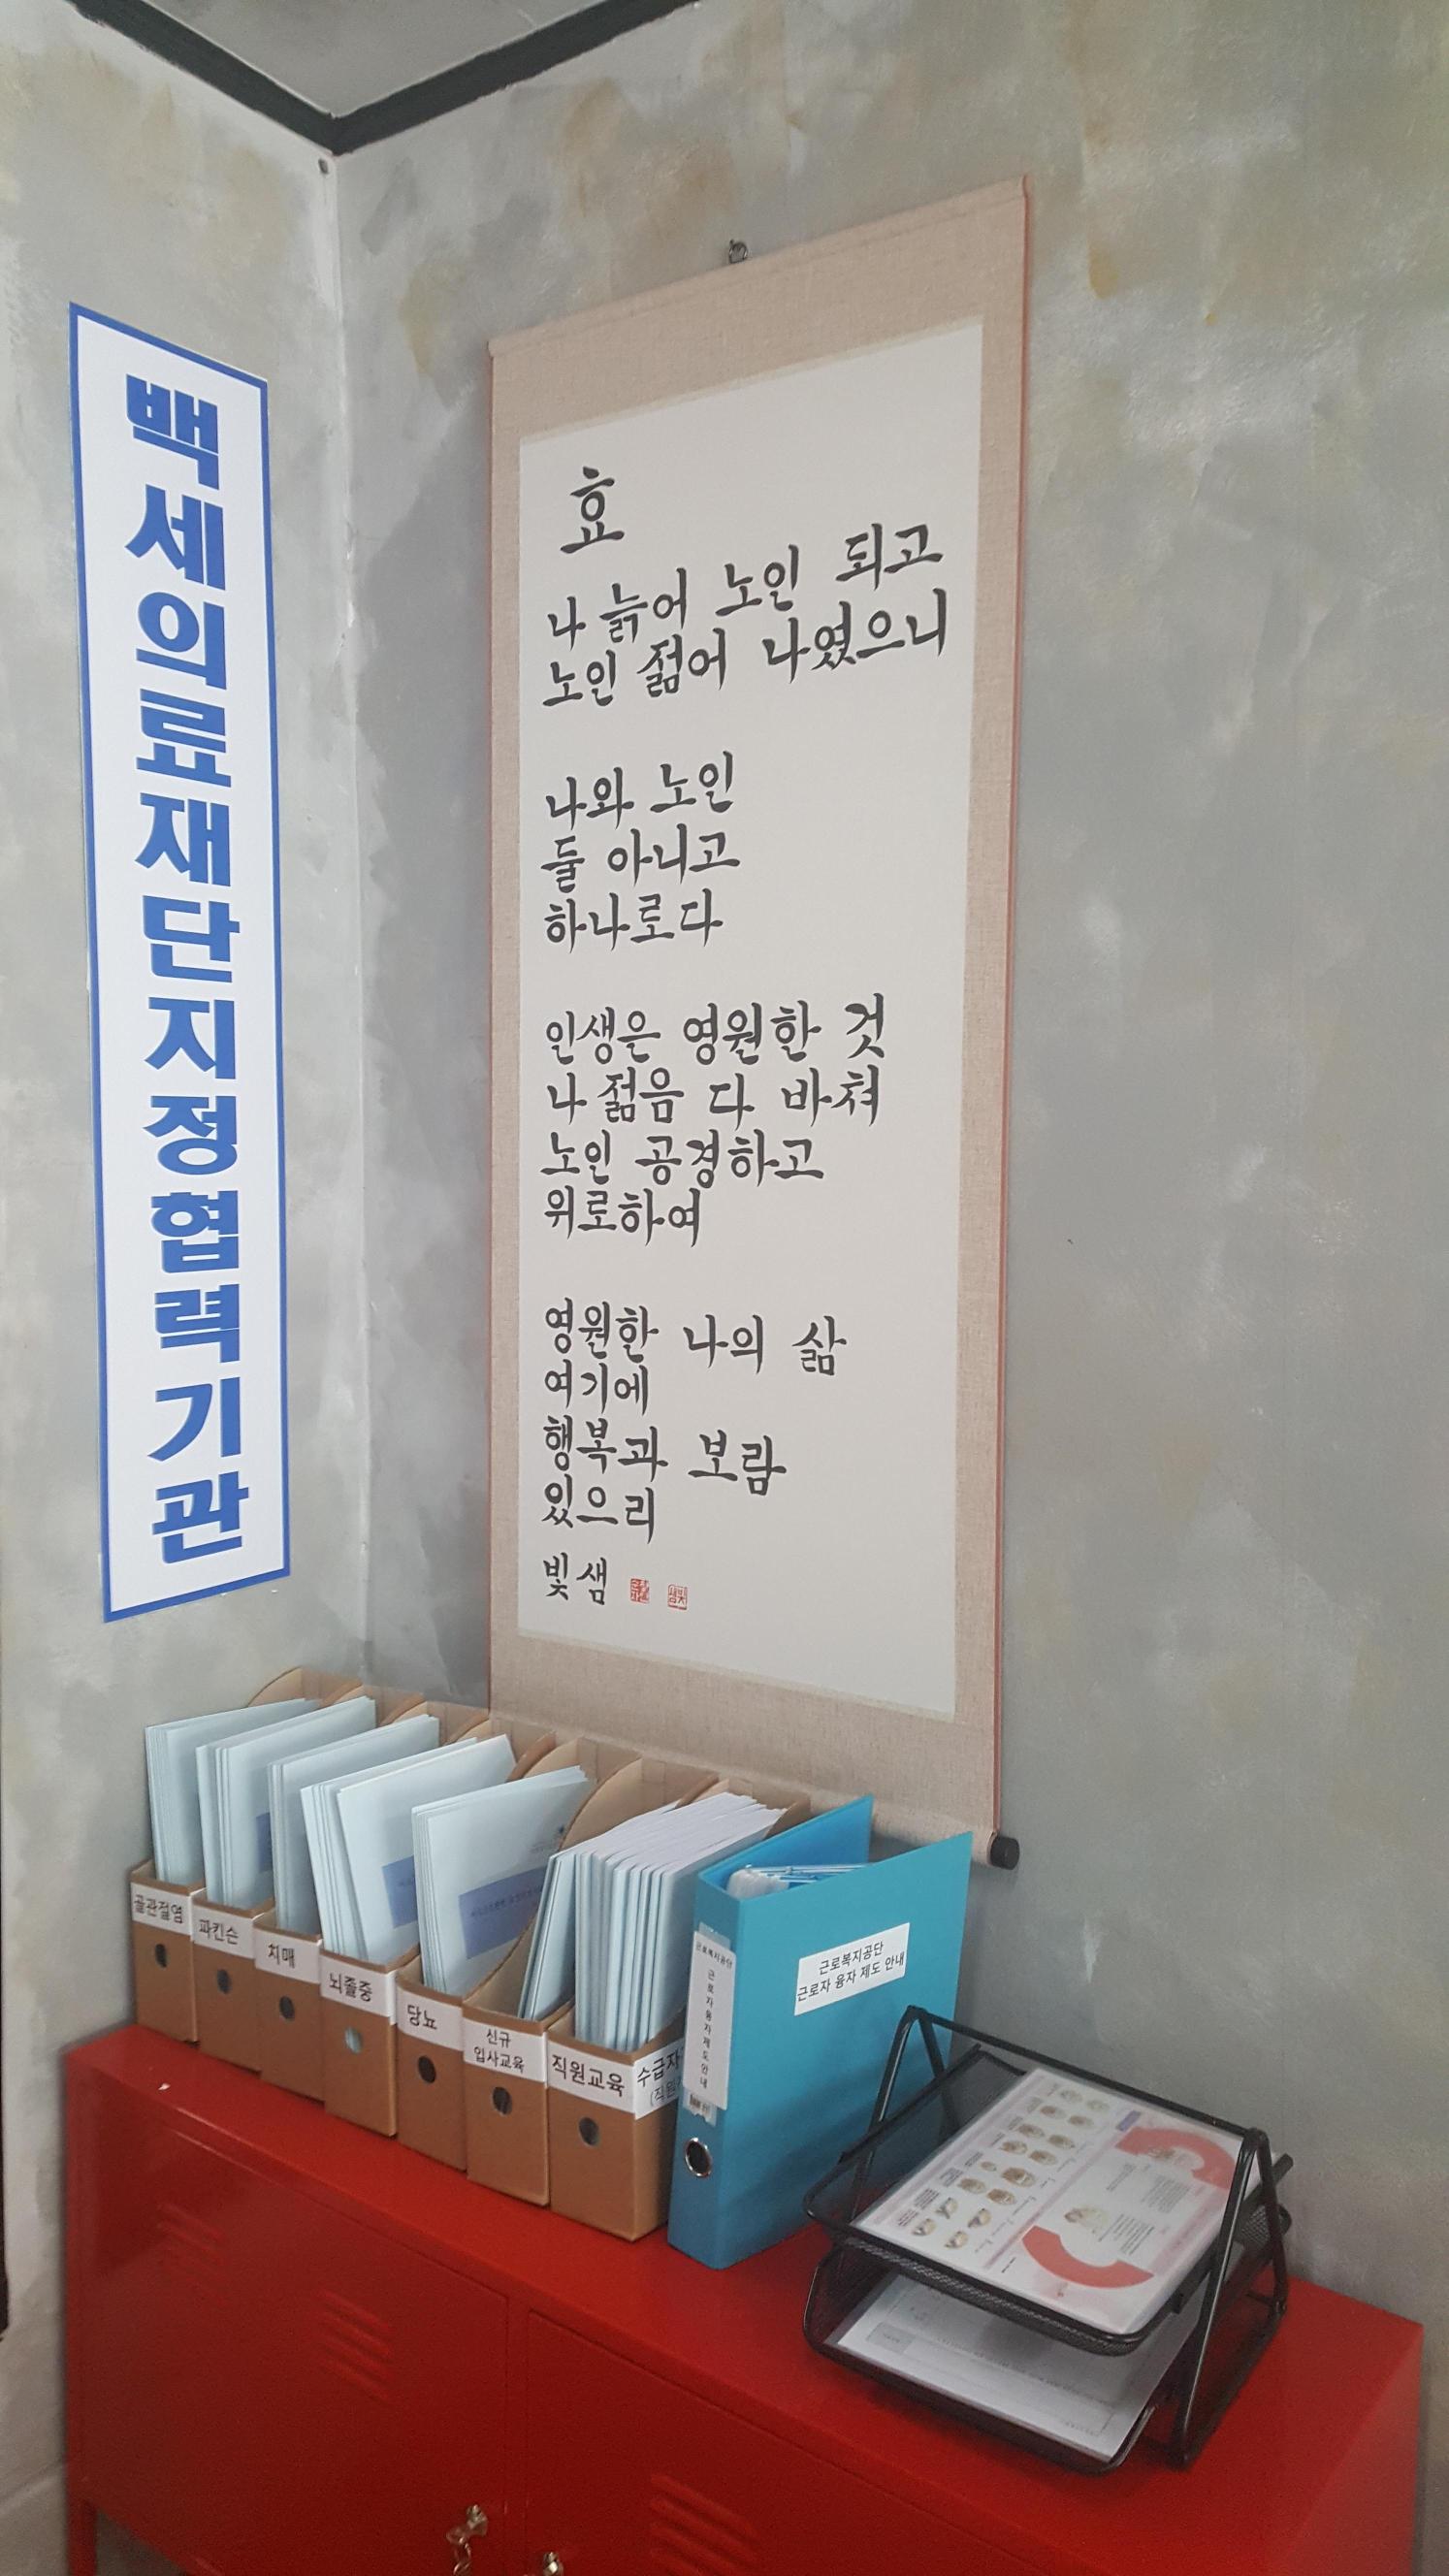 백세의료재단지정협력기관
효
나 늙어 노인 되고
노인 젊어 나였으니
나와 노인
둘 아니고
하나로다
인생은 영원한 것
나 젊음 다 바쳐
노인 공경하고
위로하여
영원한 나의 삶
여기에
행복과 보람
있으리
빛샘
골관절염
파킨슨
치매
뇌졸중
당뇨
신규
입사교육
직원교육
근로복지공단
근로자융자제도안내
근로복지공단
근로자 융자 제도 안내